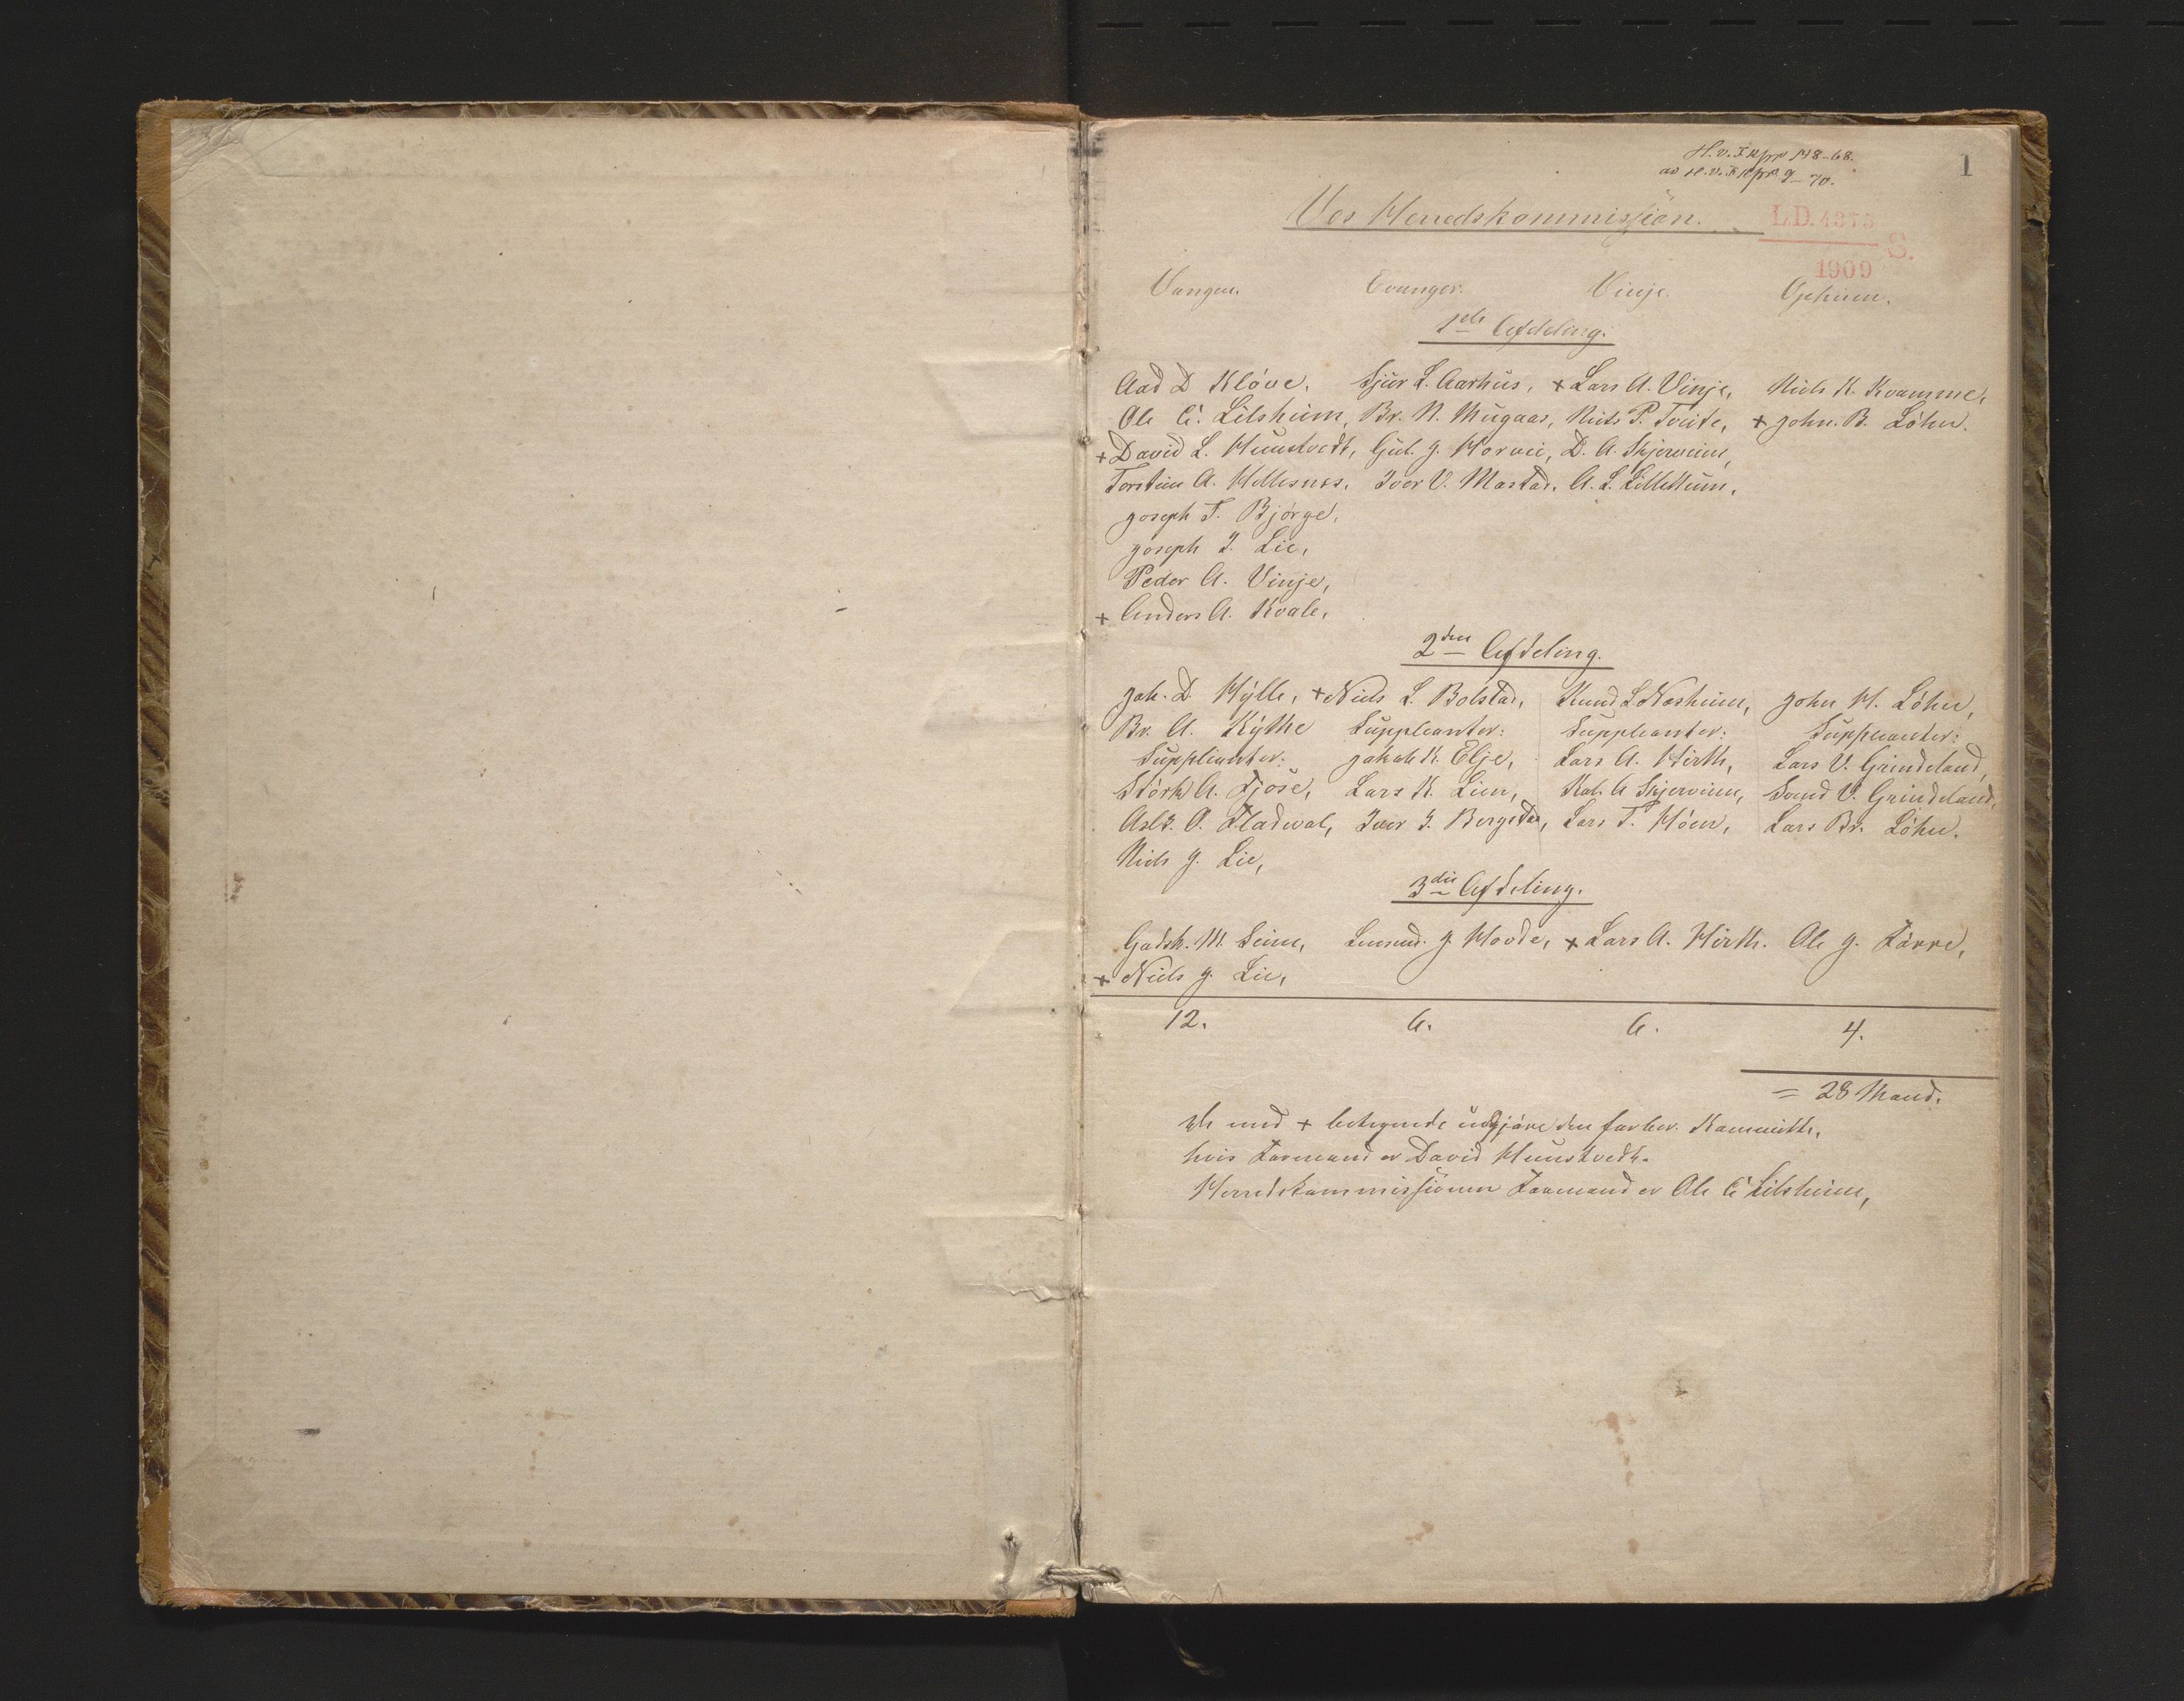 1
Vos Herredskommission.
L.D. 4373
1909
S.
Vangen. Evanger. Vinje. Opheim.
1ste Afdeling.
Aad D Kløve. Sjur L. Aarhus, + Lars A. Vinje, Niels K. Kvamme,
Ole E. Lilsheim, Br. N. Mugaas, Niels P. Tveite, + John. B. Løhn.
+ David L. Huustvedt, Gul. J. Horvei, D. A. Skjerveim,
Torstein A. Hellesnes. Iver V. Mestad, A. L. Lillethun,
Joseph T. Bjørge,
Joseph I. Lie,
Peder A. Vinje,
+ Anders A. Kvale,
2den Afdeling.
Joh. D. Hylle, + Niels L. Bolstad, Knud L Nesheim, John H. Løhn,
Br. A. Kythe Suppleanter: Suppleanter: Suppleanter:
Suppleanter: Jakob K. Elje, Lars A. Hirth, Lars V. Grindeland,
Størk A. Fjøse, Lars K. Lien, Kol. A Skjerveim, Svend V. Grindeland,
Asle. O. Fladval, Iver I. Bergstad, Lars T. Høen, Lars Br. Løhn.
Niels J. Lie,
3die Afdeling.
Godsk. M. Seim, J. Hovde, + Lars A. Hirth. Ole J. Tørre,
+ Niels J. Lie,
12. 6. 6. 4.
= 28 Mand.
De med + betegnede udgjøre den forber. Kommitte,
hvis Formand er David Huustvedt.
Herredskommissionen Formand er Ole E Lilsheim,